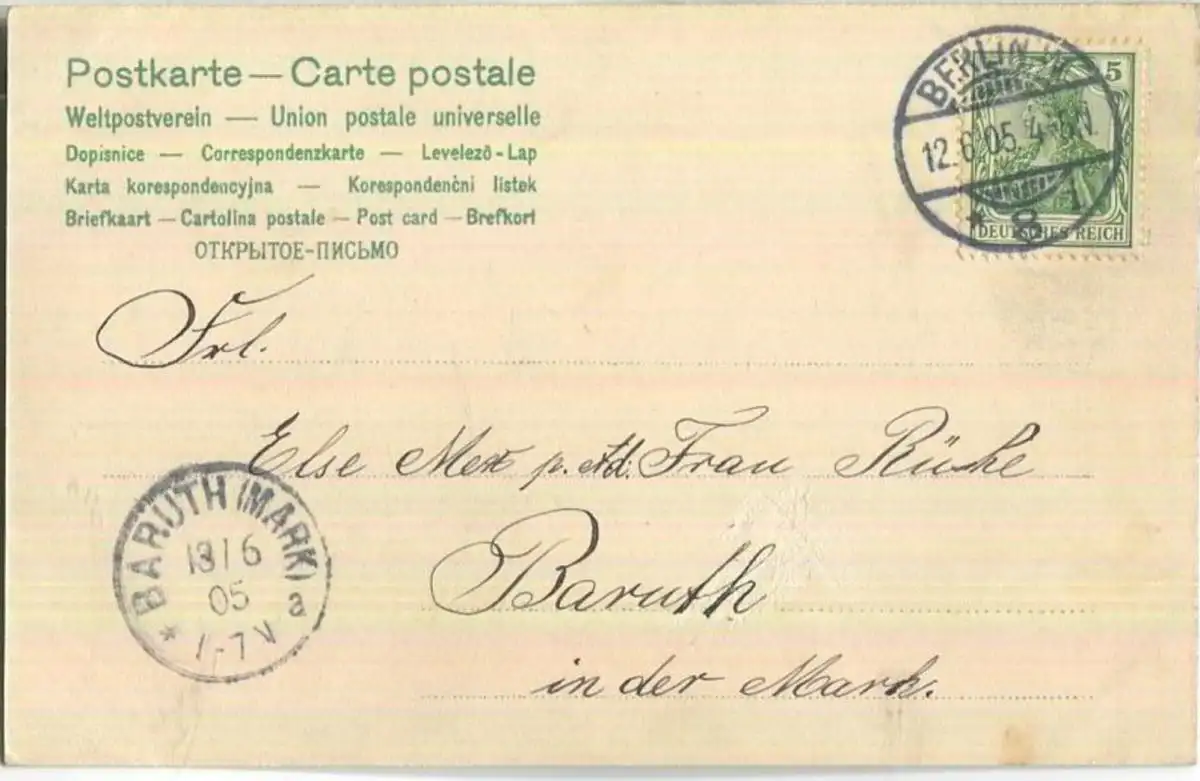 Postkarte — Carte postale
Weltpostverein — Union postale universelle
Dopisnice — Correspondenzkarte — Levelező-Lap
Karta korespondencyjna — Korespondenční lístek
Briefkaart — Cartolina postale — Post card — Brefkort
ОТКРЫТОЕ-ПИСЬМО
BERLIN W
12.6.05. 4-5N.
* 8
5
DEUTSCHES REICH
Frl.
Else Mex p. Ad: Frau
Baruth
in der Mark.
BARUTH (MARK)
13/6
05
* a